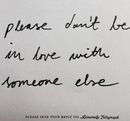 please don't be
in love with
someone else
PLEASE SEND YOUR REPLY VIA